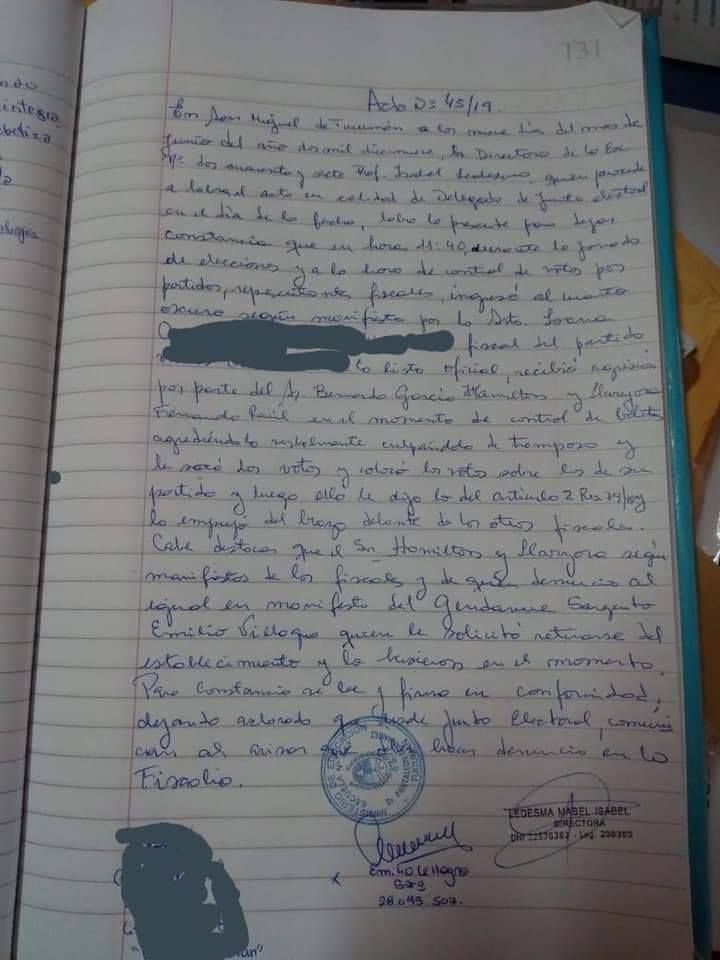 131
Acta Nº 45/19.
En San Miguel de Tucumán a los nueve día del mes de
Junio del año dos mil diecinueve, la Directora de la Esc
Nº dos cuarenta y siete Prof. Isabel Ledesma, quien procede
a labrar el acta en calidad de Delegado de Junta electoral
en el día de la fecha, labro la presente para dejar
constancia que en hora 11:40, durante la jornada
de elecciones y a la hora de control de votos por
partidos, representantes fiscales, ingresó al cuarto
oscuro según manifiesta por la Srta. Ioana
fiscal del partido
la lista oficial, recibió agresión
por parte del Sr Bernardo García Hamilton y Llaryora
Fernando Raúl en el momento de control de boletas
agrediéndola verbalmente culpándola de tramposa y
le sacó dos votos y colocó los votos sobre los de su
partido y luego ella le dijo lo del artículo 2 Res 79/
lo empujó del brazo delante de los otros fiscales.
Cabe destacar que el Sr. Hamilton y Llaryora según
manifiestos de los fiscales y de quien denuncia al
igual en manifiesto del Gendarme Sargento
Emilio Villagra quien le solicitó retirarse del
establecimiento y lo hicieron en el momento.
Para constancia se lee y firma en conformidad,
dejando aclarado que desde Junta Electoral, comuni
can al avisar que hagan denuncia en la
Fiscalía.
MINISTERIO DE EDUCACION
ESCUELA Nº
LEDESMA MABEL ISABEL
DIRECTORA
Sarg
28.099.507.